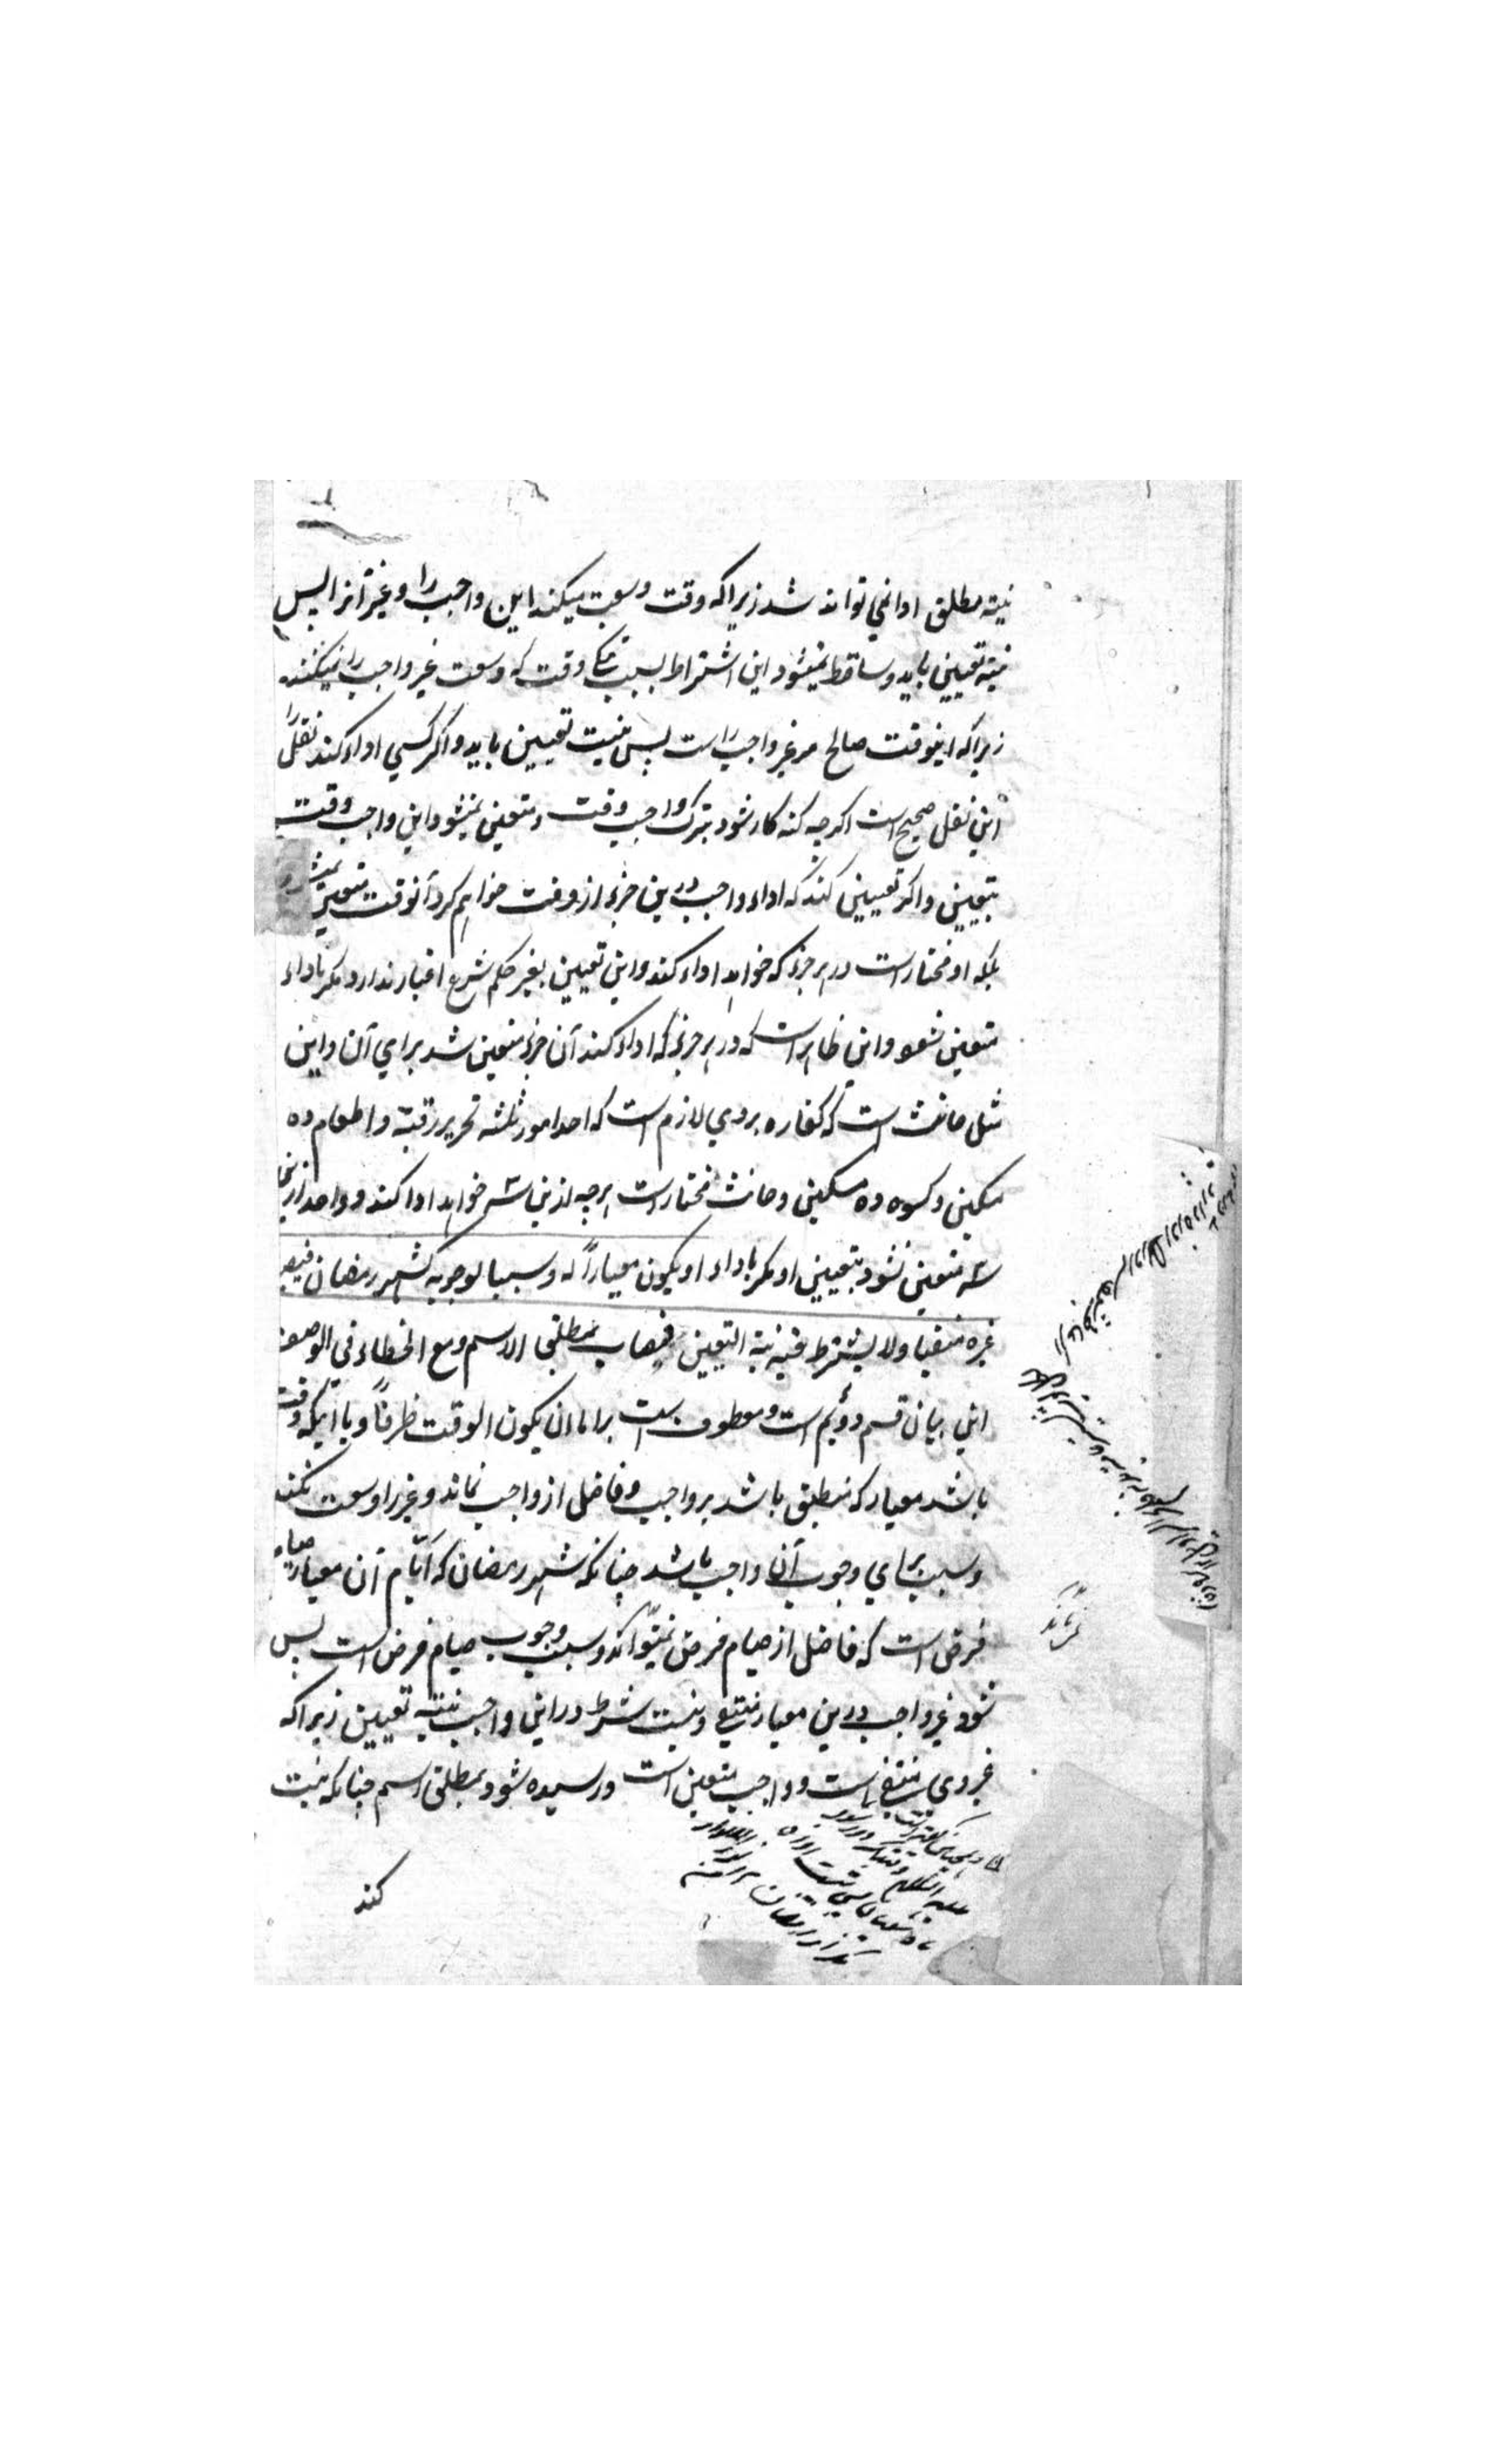 نیته مطلق ادا نمی تواند شد زیرا که وقت وسعت میکند این واجب را و غیر آنرا پس
نیته تعیین باید و ساقط نمیشود این اشتراط بسبب تنگی وقت که وسعت غیر واجب را نمیکند
زیرا که اینوقت صالح مر غیر واجب راست پس نیت تعیین باید و اگر کسی اداء کند نفل را
این نفل صحیح است اگرچه کنه کار شود بترک واجب وقت و متعین نمیشود این واجب وقت
بتعیین و اگر تعیین کند که اداء واجب درین جزء از وقت خواهم کرد آنوقت متعین نمیشود
بلکه او مختار است در هر جزء که خواهد اداء کند و این تعیین بغیر حکم شرع اعتبار ندارد مگر باداء
متعین شود و این ظاهر است که در هر جزء که اداء کند آن جزء متعین شد برای آن و این
مثل حانث است که کفاره بروی لازم است که احد امور ثلثه تحریر رقبة و اطعام ده
مسکین و کسوه ده مسکین و حانث مختار است هرچه ازین سه خواهد ادا کند و واحد ازین
سه متعین نشود بتعیین او مگر باداء او یکون معیاراً له و سببا لوجوبه کشهر رمضان فیصیر
غیره منفیا ولا یشترط فیه نیة التعیین فیصاب بمطلق الاسم ومع الخطاء فی الوصف
این بیان قسم دوئم است و معطوف است بر اما ان یکون الوقت ظرفاً و یا آنکه وقت
باشد معیار که منطبق باشد بر واجب و فاضل از واجب نماند و غیر او وسعت نکند
و سبب برای وجوب آن واجب باشد چنانکه شهر رمضان که ایّام آن معیار صیام
فرض است که فاضل از صیام فرض نمیتواند و سبب وجوب صیام فرض است پس
شود غیر واجب درین معیار منتفی و نیست شرط در این واجب نیته تعیین زیرا که
غیر وی منتفی است و واجب متعین است و رسیده شود بمطلق اسم چنانکه نیت
کند